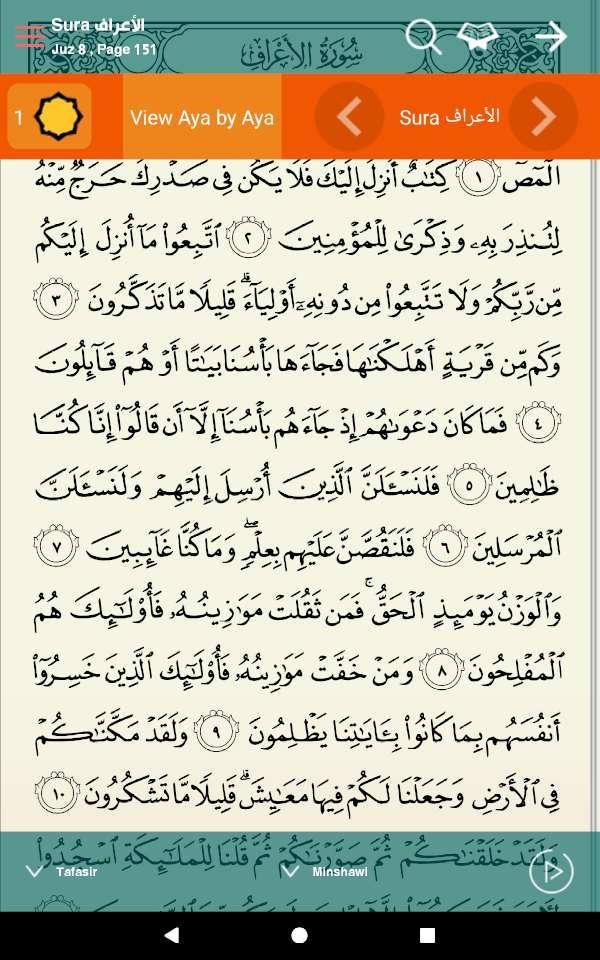 Sura الأعراف
Juz 8 , Page 151
سُورَةُ الأَعْرَافِ
1
View Aya by Aya
Sura الأعراف
الٓمٓصٓ ١ كِتَٰبٌ أُنزِلَ إِلَيْكَ فَلَا يَكُن فِى صَدْرِكَ حَرَجٌ مِّنْهُ
لِتُنذِرَ بِهِۦ وَذِكْرَىٰ لِلْمُؤْمِنِينَ ٢ ٱتَّبِعُوا۟ مَآ أُنزِلَ إِلَيْكُم
مِّن رَّبِّكُمْ وَلَا تَتَّبِعُوا۟ مِن دُونِهِۦٓ أَوْلِيَآءَ ۗ قَلِيلًا مَّا تَذَكَّرُونَ ٣
وَكَم مِّن قَرْيَةٍ أَهْلَكْنَٰهَا فَجَآءَهَا بَأْسُنَا بَيَٰتًا أَوْ هُمْ قَآئِلُونَ
٤ فَمَا كَانَ دَعْوَىٰهُمْ إِذْ جَآءَهُم بَأْسُنَآ إِلَّآ أَن قَالُوٓا۟ إِنَّا كُنَّا
ظَٰلِمِينَ ٥ فَلَنَسْـَٔلَنَّ ٱلَّذِينَ أُرْسِلَ إِلَيْهِمْ وَلَنَسْـَٔلَنَّ
ٱلْمُرْسَلِينَ ٦ فَلَنَقُصَّنَّ عَلَيْهِم بِعِلْمٍ ۖ وَمَا كُنَّا غَآئِبِينَ ٧
وَٱلْوَزْنُ يَوْمَئِذٍ ٱلْحَقُّ ۚ فَمَن ثَقُلَتْ مَوَٰزِينُهُۥ فَأُو۟لَٰٓئِكَ هُمُ
ٱلْمُفْلِحُونَ ٨ وَمَنْ خَفَّتْ مَوَٰزِينُهُۥ فَأُو۟لَٰٓئِكَ ٱلَّذِينَ خَسِرُوٓا۟
أَنفُسَهُم بِمَا كَانُوا۟ بِـَٔايَٰتِنَا يَظْلِمُونَ ٩ وَلَقَدْ مَكَّنَّٰكُمْ
فِى ٱلْأَرْضِ وَجَعَلْنَا لَكُمْ فِيهَا مَعَٰيِشَ ۗ قَلِيلًا مَّا تَشْكُرُونَ ١٠
وَلَقَدْ خَلَقْنَٰكُمْ ثُمَّ صَوَّرْنَٰكُمْ ثُمَّ قُلْنَا لِلْمَلَٰٓئِكَةِ ٱسْجُدُوا۟
Tafasir
Minshawi